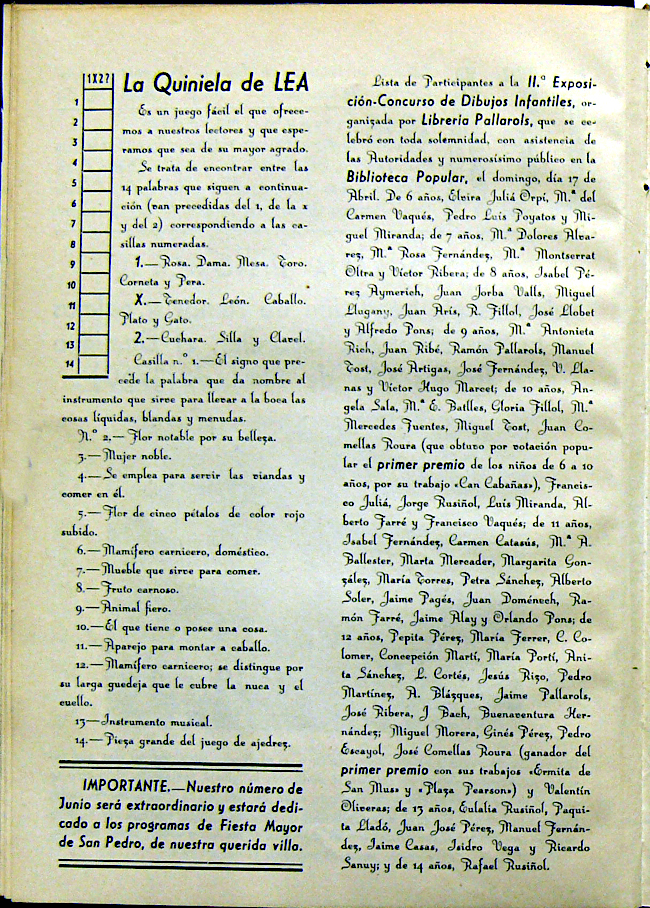 1X2?
1
2
3
4
5
6
7
8
9
10
11
12
13
14
La Quiniela de LEA
Es un juego fácil el que ofrece-
mos a nuestros lectores y que espe-
ramos que sea de su mayor agrado.
Se trata de encontrar entre las
14 palabras que siguen a continua-
ción (van precedidas del 1, de la x
y del 2) correspondiendo a las ca-
sillas numeradas.
1.—Rosa. Dama. Mesa. Toro.
Corneta y Pera.
X.—Tenedor. León. Caballo.
Plato y Gato.
2.—Cuchara. Silla y Clavel.
Casilla n.º 1.—El signo que pre-
cede la palabra que da nombre al
instrumento que sirve para llevar a la boca las
cosas líquidas, blandas y menudas.
N.º 2.—Flor notable por su belleza.
3.—Mujer noble.
4.—Se emplea para servir las viandas y
comer en él.
5.—Flor de cinco pétalos de color rojo
subido.
6.—Mamífero carnicero, doméstico.
7.—Mueble que sirve para comer.
8.—Fruto carnoso.
9.—Animal fiero.
10.—El que tiene o posee una cosa.
11.—Aparejo para montar a caballo.
12.—Mamífero carnicero; se distingue por
su larga guedeja que le cubre la nuca y el
cuello.
13—Instrumento musical.
14.—Pieza grande del juego de ajedrez.
IMPORTANTE.—Nuestro número de
Junio será extraordinario y estará dedi-
cado a los programas de Fiesta Mayor
de San Pedro, de nuestra querida villa.
Lista de Participantes a la II.ª Exposi-
ción-Concurso de Dibujos Infantiles, or-
ganizada por Libreria Pallarols, que se ce-
lebró con toda solemnidad, con asistencia de
las Autoridades y numerosísimo público en la
Biblioteca Popular, el domingo, día 17 de
Abril. De 6 años, Elvira Juliá Orpí, M.ª del
Carmen Vaqués, Pedro Luis Poyatos y Mi-
guel Miranda; de 7 años, M.ª Dolores Alva-
rez, M.ª Rosa Fernández, M.ª Montserrat
Oltra y Víctor Ribera; de 8 años, Isabel Pé-
rez Aymerich, Juan Jorba Valls, Miguel
Llugany, Juan Arís, R. Fillol, José Llobet
y Alfredo Pons; de 9 años, M.ª Antonieta
Rich, Juan Ribé, Ramón Pallarols, Manuel
Tost, José Artigas, José Fernández, V. Lla-
nas y Víctor Hugo Marcet; de 10 años, An-
gela Sala, M.ª E. Batlles, Gloria Fillol, M.ª
Mercedes Fuentes, Miguel Tost, Juan Co-
mellas Roura (que obtuvo por votación popu-
lar el primer premio de los niños de 6 a 10
años, por su trabajo «Can Cabañas»), Francis-
co Juliá, Jorge Rusiñol, Luís Miranda, Al-
berto Farré y Francisco Vaqués; de 11 años,
Isabel Fernández, Carmen Catasús, M.ª A.
Ballester, Marta Mercader, Margarita Gon-
zález, María Torres, Petra Sánchez, Alberto
Soler, Jaime Pagés, Juan Doménech, Ra-
món Farré, Jaime Alay y Orlando Pons; de
12 años, Pepita Pérez, María Ferrer, C. Co-
lomer, Concepción Martí, María Portí, Ani-
ta Sánchez, L. Cortés, Jesús Rizo, Pedro
Martínez, A. Blázques, Jaime Pallarols,
José Ribera, J Bach, Buenaventura Her-
nández; Miguel Morera, Ginés Pérez, Pedro
Escayol, José Comellas Roura (ganador del
primer premio con sus trabajos «Ermita de
San Mus» y «Plaza Pearson») y Valentín
Oliveras; de 13 años, Eulalia Rusiñol, Paqui-
ta Lladó, Juan José Pérez, Manuel Fernán-
dez, Jaime Casas, Isidro Vega y Ricardo
Sanuy; y de 14 años, Rafael Rusiñol.